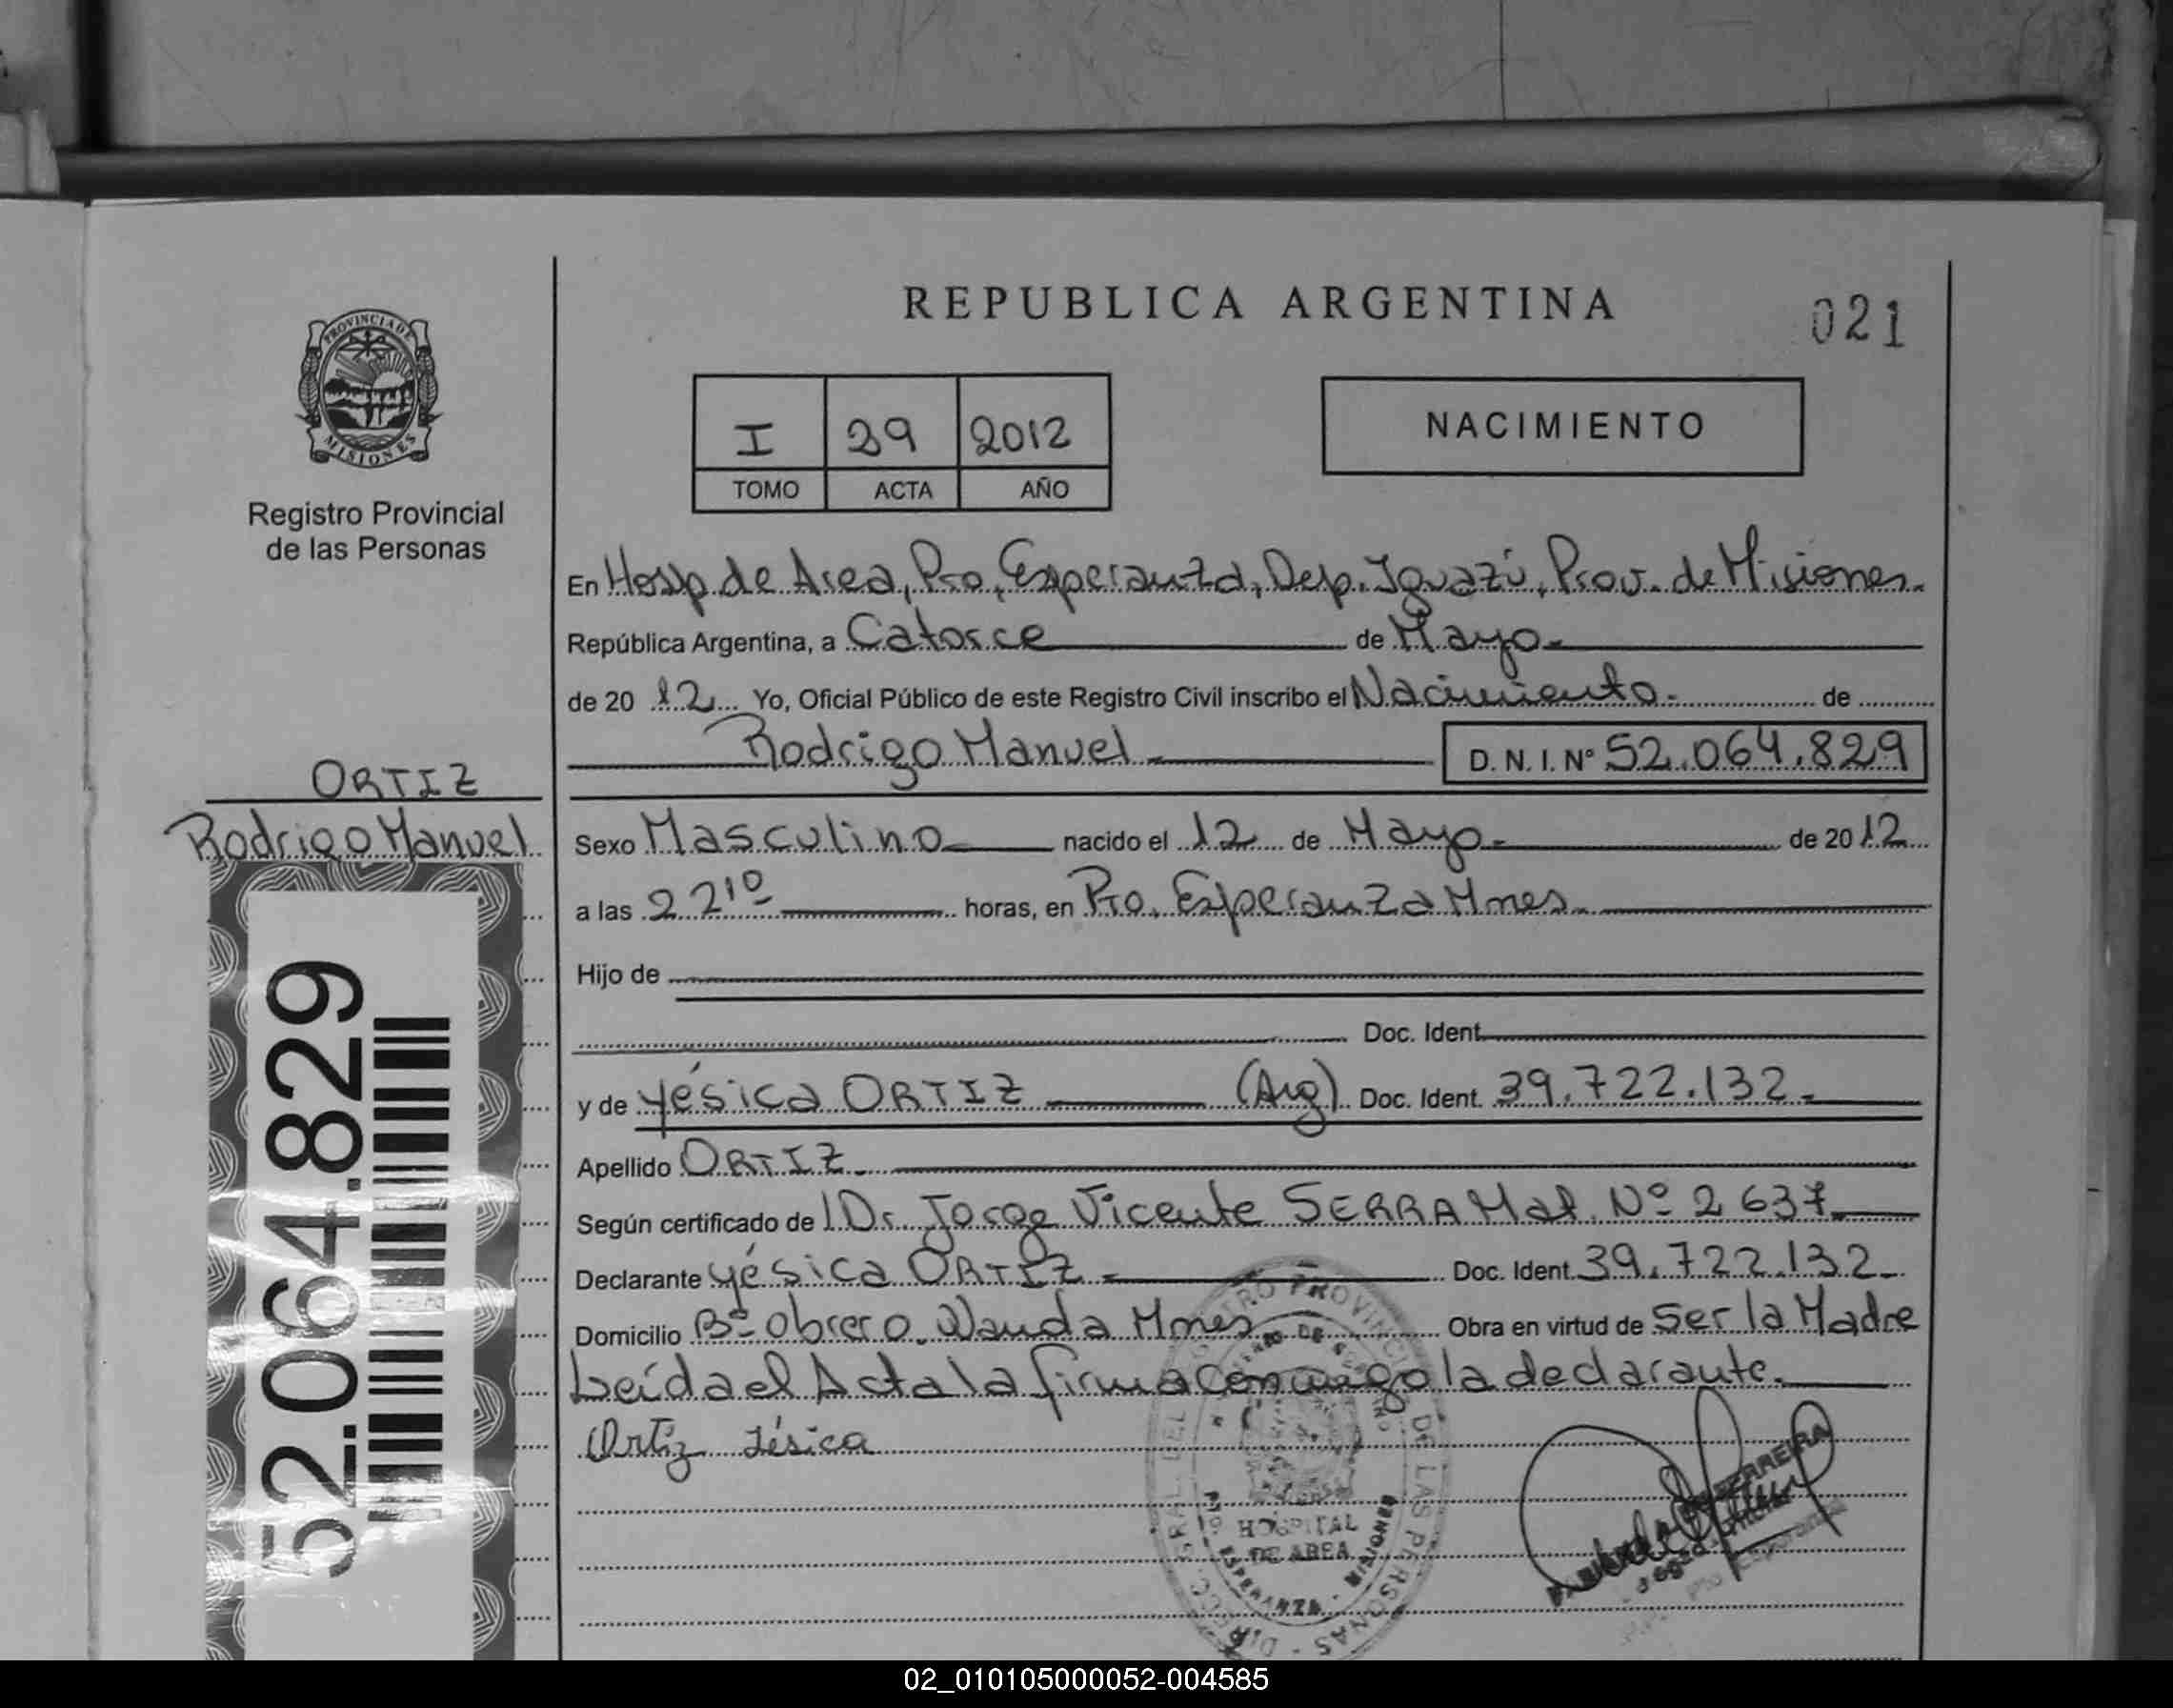 REPUBLICA ARGENTINA
021
PROVINCIA DE
MISIONES
Registro Provincial
de las Personas
I 29 2012
TOMO ACTA AÑO
NACIMIENTO
En Hosp. de Area, Pto. Esperanza, Dep. Iguazú, Prov. de Misiones.
República Argentina, a Catorce de Mayo
de 20 12 Yo, Oficial Público de este Registro Civil inscribo el Nacimiento. de
Rodrigo Manuel D. N. I. Nº 52.064.829
ORTIZ
Rodrigo Manuel
Sexo Masculino nacido el 12 de Mayo de 20 12
a las 22¹⁰ horas, en Pto. Esperanza Mnes.
Hijo de
Doc. Ident.
y de Yésica ORTIZ (Arg) Doc. Ident. 39.722.132.
Apellido ORTIZ.
Según certificado de l Dr. Jorge Vicente SERRA Mat. Nº 2637
Declarante Yésica ORTIZ Doc. Ident. 39.722.132
Domicilio Bº Obrero. Wanda Mnes Obra en virtud de Ser la Madre
Leída el Acta la firma conmigo la declarante.
Ortiz Jésica
52.064.829
HOSPITAL
DE AREA
ESPERANZA - MISIONES
FERREIRA
02_010105000052-004585